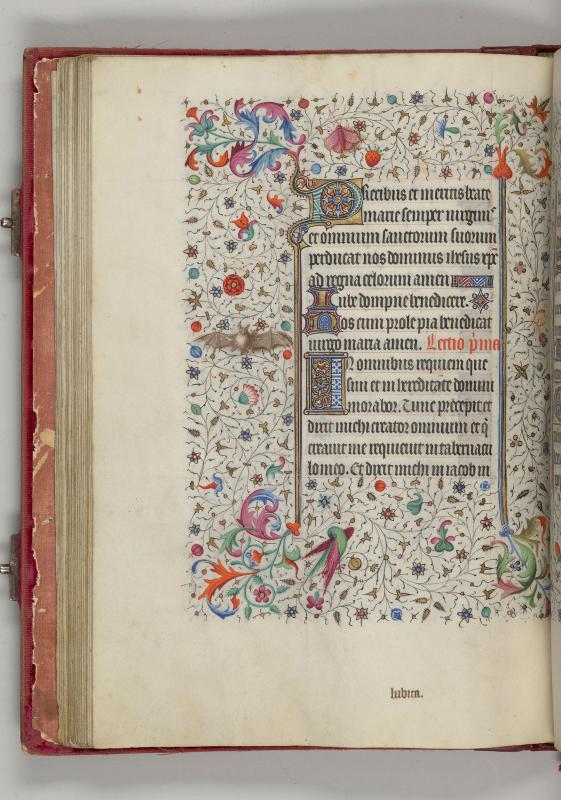 Precibus et meritis beate
marie semper uirginis
et omnium sanctorum suorum
perducat nos dominus ihesus xp̄s
ad regna celorum amen
Iube dompne benedicere.
Nos cum prole pia benedicat
uirgo maria amen. Lectio p̄ma
IN omnibus requiem que
siui et in hereditate domini
morabor. Tunc precepit et
dixit michi creator omnium et q̄
creauit me requieuit in tabernacu
lo meo. Et dixit michi in iacob in
Iubita.